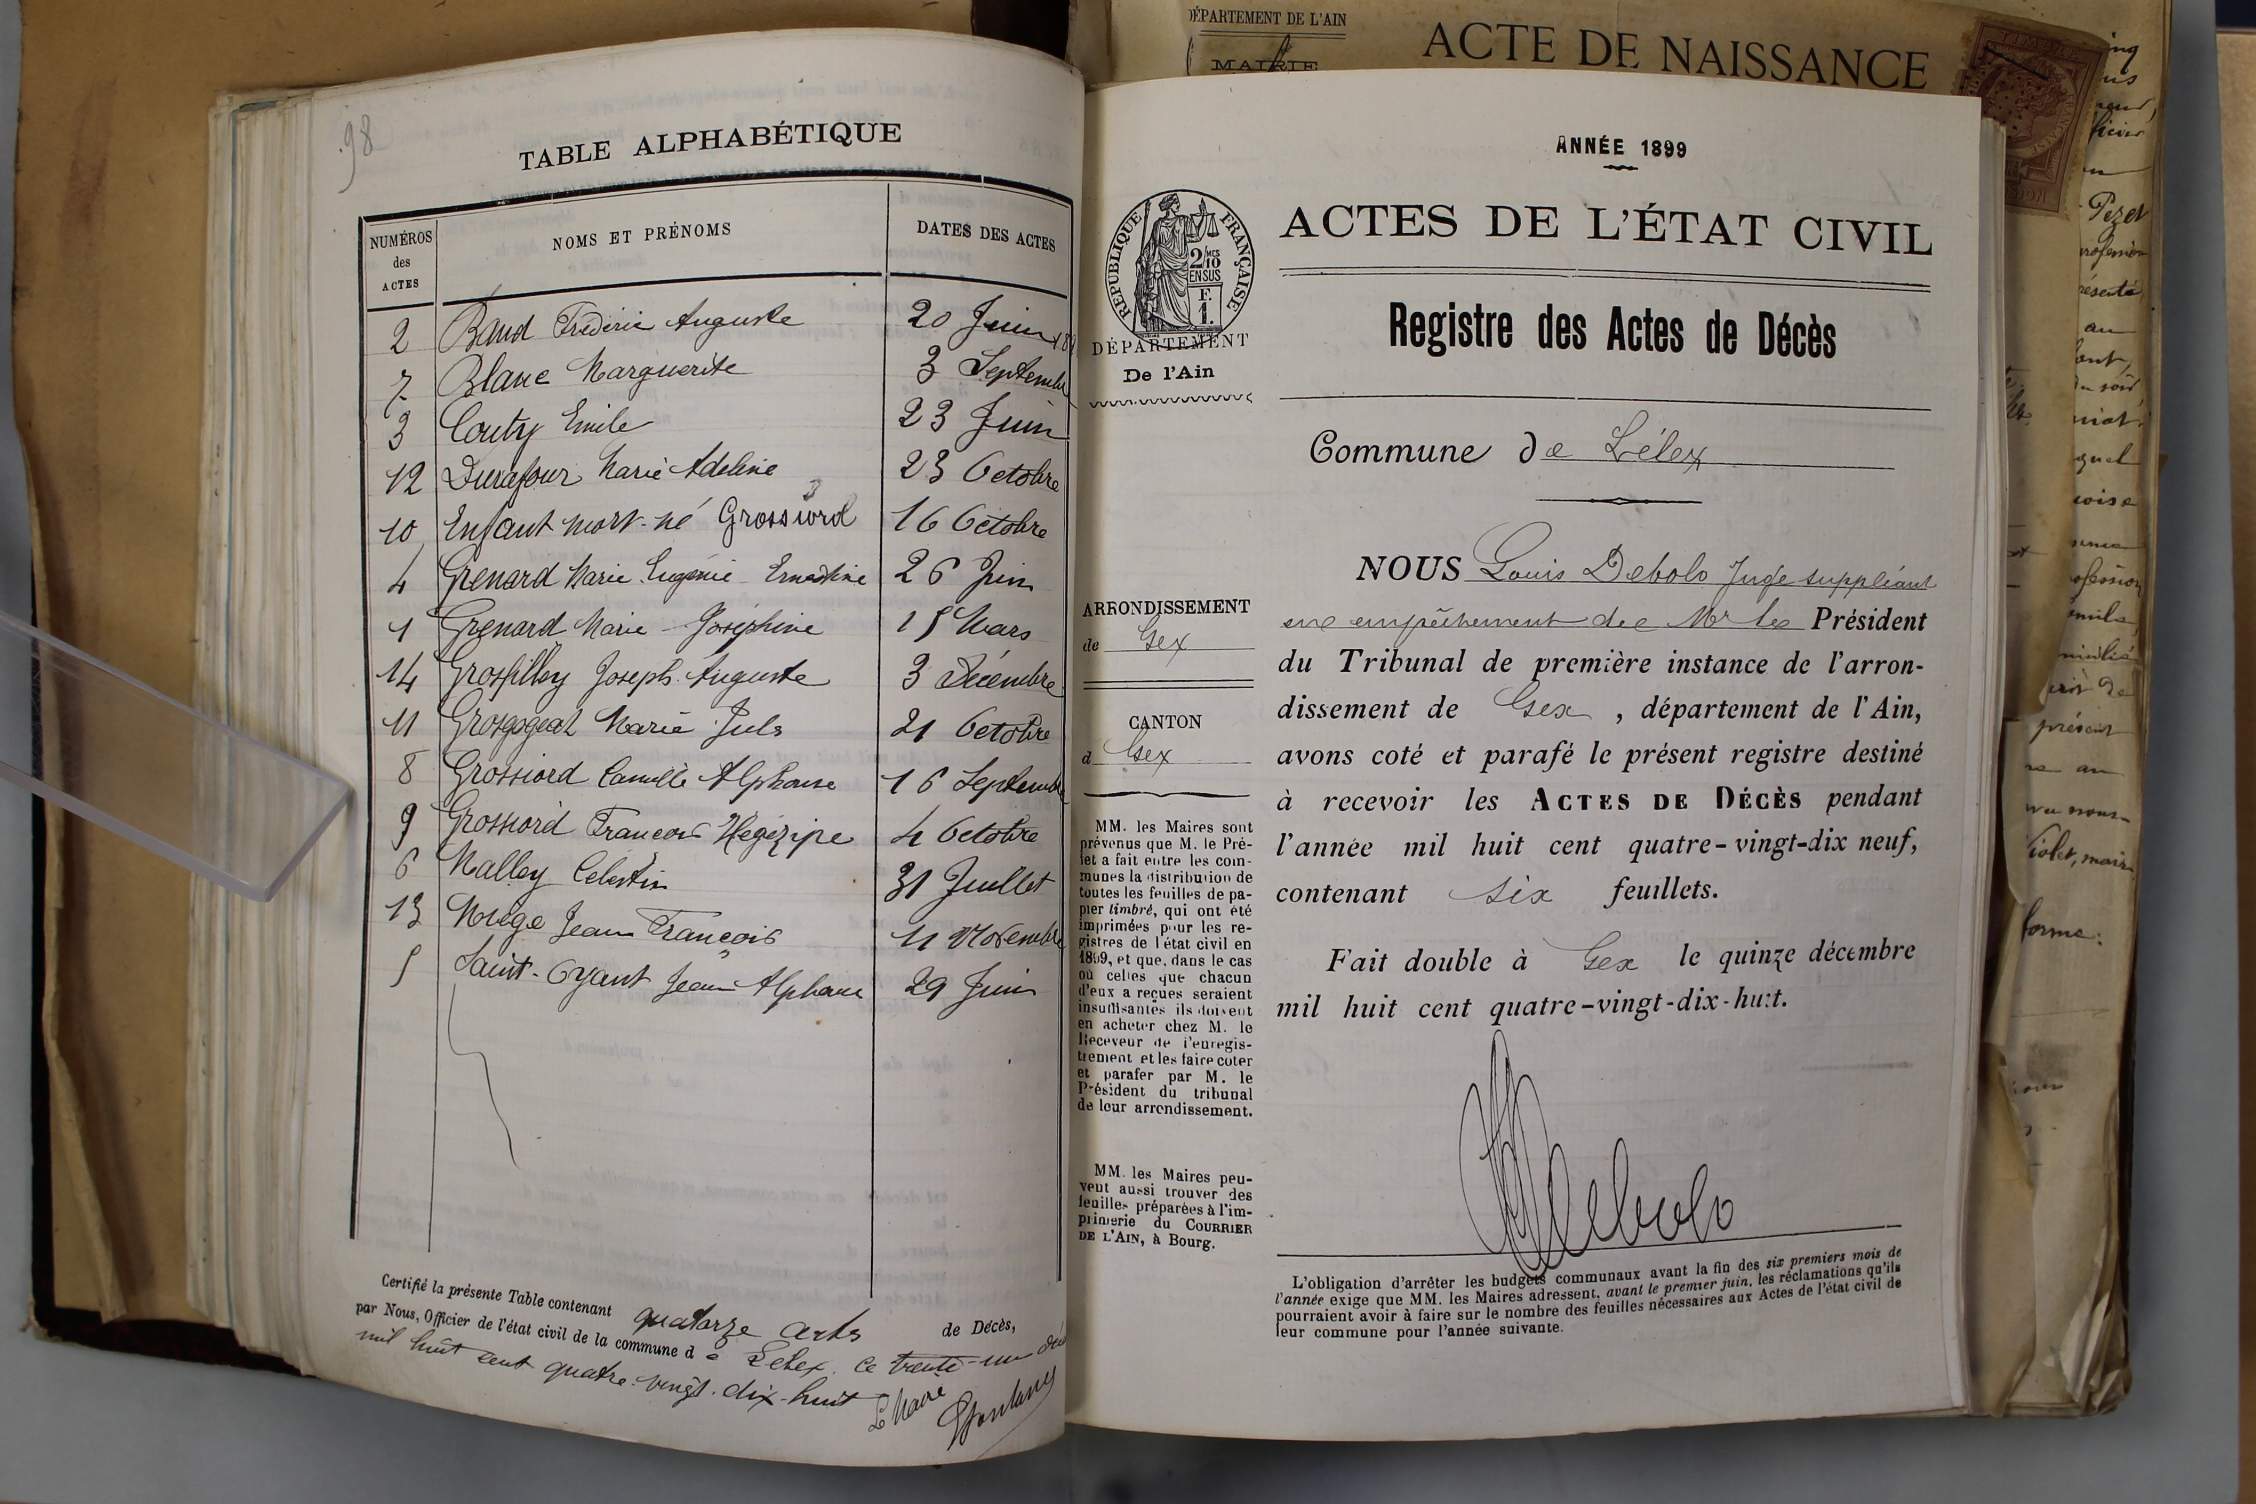 98
TABLE ALPHABÉTIQUE
NUMÉROS des ACTES
NOMS ET PRÉNOMS
DATES DES ACTES
2 Baud Frédéric Auguste 20 Juin
7 Blanc Marguerite 3 Septembre
3 Couty Emile 23 Juin
12 Durafour Marie Adeline 23 Octobre
10 Enfant mort-né Grossiord 16 Octobre
4 Grenard Marie Eugénie Ernestine 26 Juin
1 Grenard Marie Joséphine 15 Mars
14 Grosfilley Joseph Auguste 3 Décembre
11 Grosgogeat Marie Jules 21 Octobre
8 Grossiord Camille Alphonse 16 Septembre
9 Grossiord François Hégézipe 4 Octobre
6 Malley Celestin 31 Juillet
13 Muge Jean François 11 Novembre
5 Saint-Oyant Jean Alphonse 29 Juin
Certifié la présente Table contenant quatorze actes de Décès,
par Nous, Officier de l'état civil de la commune de Lélex, ce trente-un
mil huit cent quatre-vingt-dix-huit
Le Maire
DÉPARTEMENT DE L'AIN
MAIRIE
ACTE DE NAISSANCE
ANNÉE 1899
RÉPUBLIQUE FRANÇAISE
2/10 MES
EN SUS
F.
1.
DÉPARTEMENT
De l'Ain
ACTES DE L'ÉTAT CIVIL
Registre des Actes de Décès
Commune de Lélex
ARRONDISSEMENT
de Gex
CANTON
d Gex
MM. les Maires sont
prévenus que M. le Pré-
fet a fait entre les com-
munes la distribution de
toutes les feuilles de pa-
pier timbré, qui ont été
imprimées pour les re-
gistres de l'état civil en
1899, et que, dans le cas
où celles que chacun
d'eux a reçues seraient
insuffisantes ils doivent
en acheter chez M. le
Receveur de l'enregis-
trement et les faire coter
et parafer par M. le
Président du tribunal
de leur arrondissement.
MM. les Maires peu-
vent aussi trouver des
feuilles préparées à l'im-
primerie du COURRIER
DE L'AIN, à Bourg.
NOUS Louis Debolo Juge suppléant
en empêchement de Mr le Président
du Tribunal de première instance de l'arron-
dissement de Gex, département de l'Ain,
avons coté et parafé le présent registre destiné
à recevoir les ACTES DE DÉCÈS pendant
l'année mil huit cent quatre-vingt-dix neuf,
contenant six feuillets.
Fait double à Gex le quinze décembre
mil huit cent quatre-vingt-dix-huit.
Debolo
L'obligation d'arrêter les budgets communaux avant la fin des six premiers mois de
l'année exige que MM. les Maires adressent, avant le premier juin, les réclamations qu'ils
pourraient avoir à faire sur le nombre des feuilles nécessaires aux Actes de l'état civil de
leur commune pour l'année suivante.
Pezet
profession
présenté
au
présent
Violet, maire
forme: